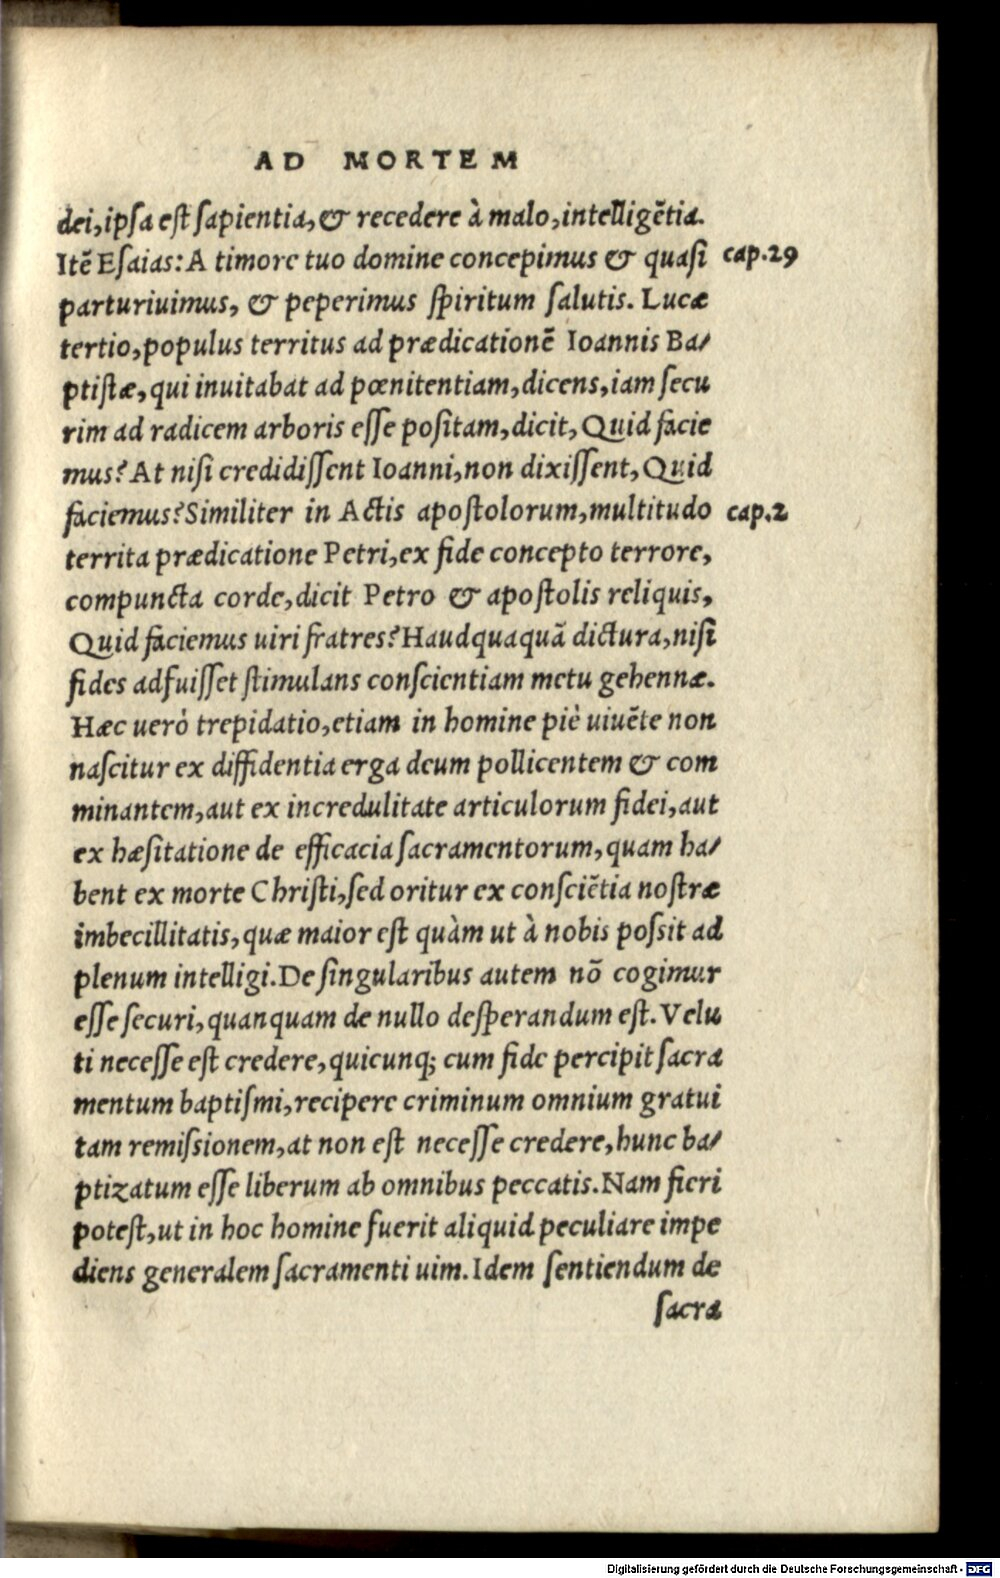 AD MORTEM
dei, ipsa est sapientia, & recedere à malo, intelligẽtia.
Itẽ Esaias: A timore tuo domine concepimus & quasi cap.29
parturiuimus, & peperimus spiritum salutis. Lucæ
tertio, populus territus ad prædicationẽ Ioannis Ba/
ptistæ, qui inuitabat ad pœnitentiam, dicens, iam secu
rim ad radicem arboris esse positam, dicit, Quid facie
mus? At nisi credidissent Ioanni, non dixissent, Quid
faciemus? Similiter in Actis apostolorum, multitudo cap.2
territa prædicatione Petri, ex fide concepto terrore,
compuncta corde, dicit Petro & apostolis reliquis,
Quid faciemus uiri fratres? Haudquaquã dictura, nisi
fides adfuisset stimulans conscientiam metu gehennæ.
Hæc uerò trepidatio, etiam in homine piè uiuẽte non
nascitur ex diffidentia erga deum pollicentem & com
minantem, aut ex incredulitate articulorum fidei, aut
ex hæsitatione de efficacia sacramentorum, quam ha/
bent ex morte Christi, sed oritur ex consciẽtia nostræ
imbecillitatis, quæ maior est quàm ut à nobis possit ad
plenum intelligi. De singularibus autem nõ cogimur
esse securi, quanquam de nullo desperandum est. Velu
ti necesse est credere, quicunq; cum fide percipit sacra
mentum baptismi, recipere criminum omnium gratui
tam remissionem, at non est necesse credere, hunc ba/
ptizatum esse liberum ab omnibus peccatis. Nam fieri
potest, ut in hoc homine fuerit aliquid peculiare impe
diens generalem sacramenti uim. Idem sentiendum de
sacra
Digitalisierung gefördert durch die Deutsche Forschungsgemeinschaft - DFG